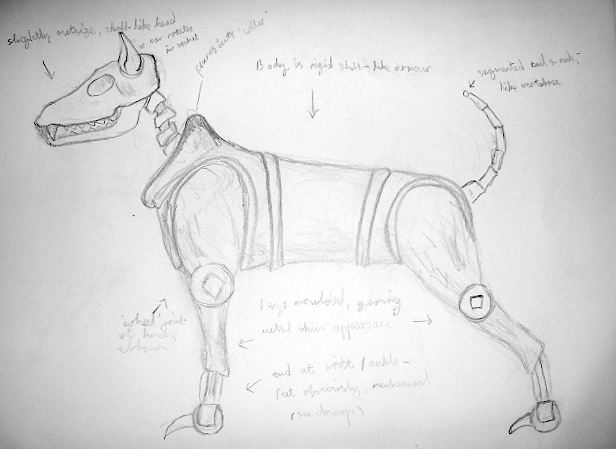 slightly outsize, skull-like head
ear rotates
in socket
'collar'
Body is rigid shell-like armour
segmented tail & neck,
like vertebrae
'wheel' joint
at
Legs moulded, giving
metal skin appearance
end at wrist/ankle-
feet obviously mechanical
(see closeups)